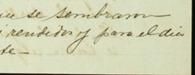 se sembraron
rendidos y para el dia
te